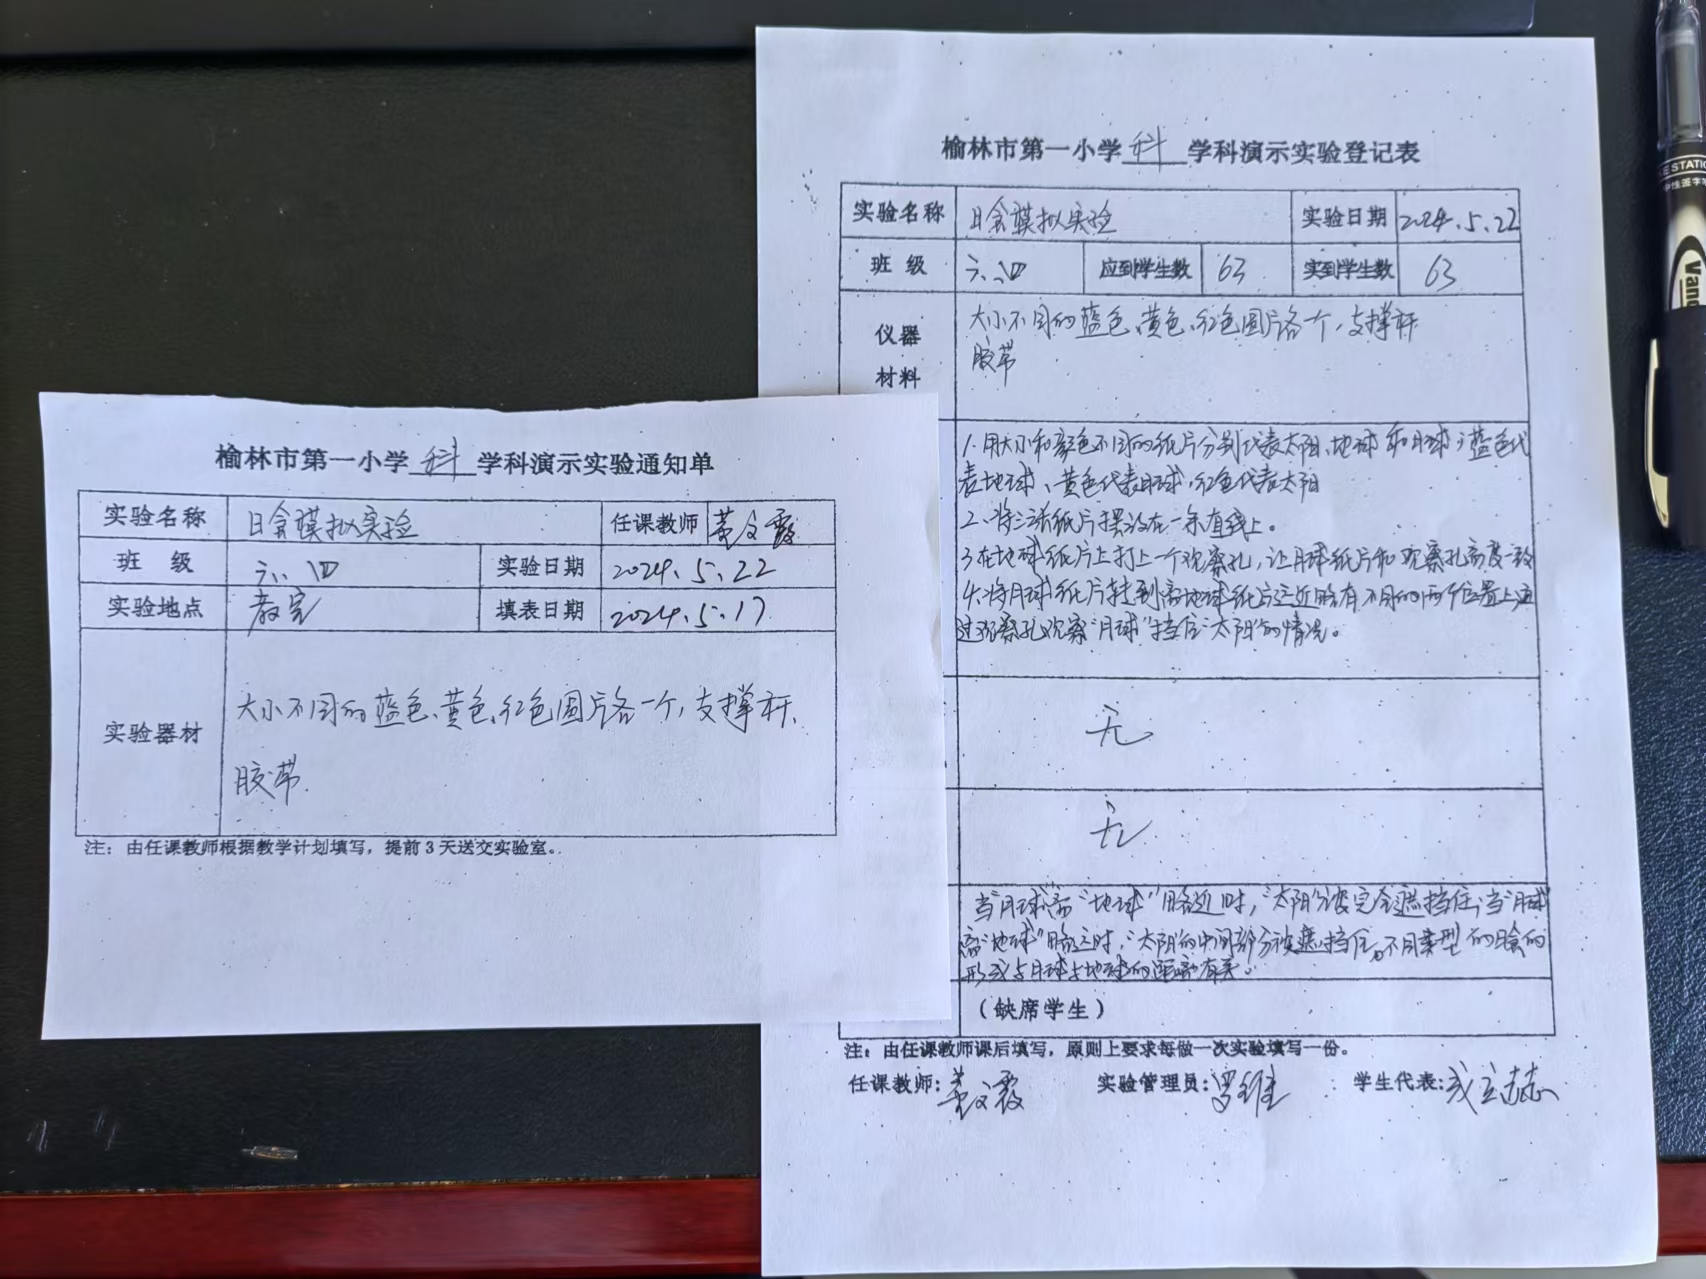 榆林市第一小学 科 学科演示实验通知单
实验名称 日食模拟实验 任课教师 黄文霞
班 级 六.四 实验日期 2024.5.22
实验地点 教室 填表日期 2024.5.17
实验器材
大小不同的蓝色、黄色、红色圆片各一个,支撑杆、
胶带
注:由任课教师根据教学计划填写,提前3天送交实验室。
榆林市第一小学 科 学科演示实验登记表
实验名称 日食模拟实验 实验日期 2024.5.22
班 级 六.四 应到学生数 63 实到学生数 63
仪器
材料
大小不同的蓝色、黄色、红色圆片各一个,支撑杆
胶带
1.用大小和颜色不同的纸片分别代表太阳、地球和月球;蓝色代
表地球、黄色代表月球,红色代表太阳
2.将三张纸片摆放在一条直线上。
3.在地球纸片上打上一个观察孔,让月球纸片和观察孔高度一致
4.将月球纸片转到离地球纸片远近略有不同的两个位置上,通
过观察孔观察“月球”挡住“太阳”的情况。
无
无
当“月球”离“地球”略近时,“太阳”被完全遮挡住;当“月球”
离“地球”略远时,“太阳”的中间部分被遮挡住。不同类型的日食的
形成与月球与地球的距离有关。
(缺席学生)
注:由任课教师课后填写,原则上要求每做一次实验填写一份。
任课教师:黄文霞 实验管理员:罗维 学生代表:
E STATIO
中性签字
Van